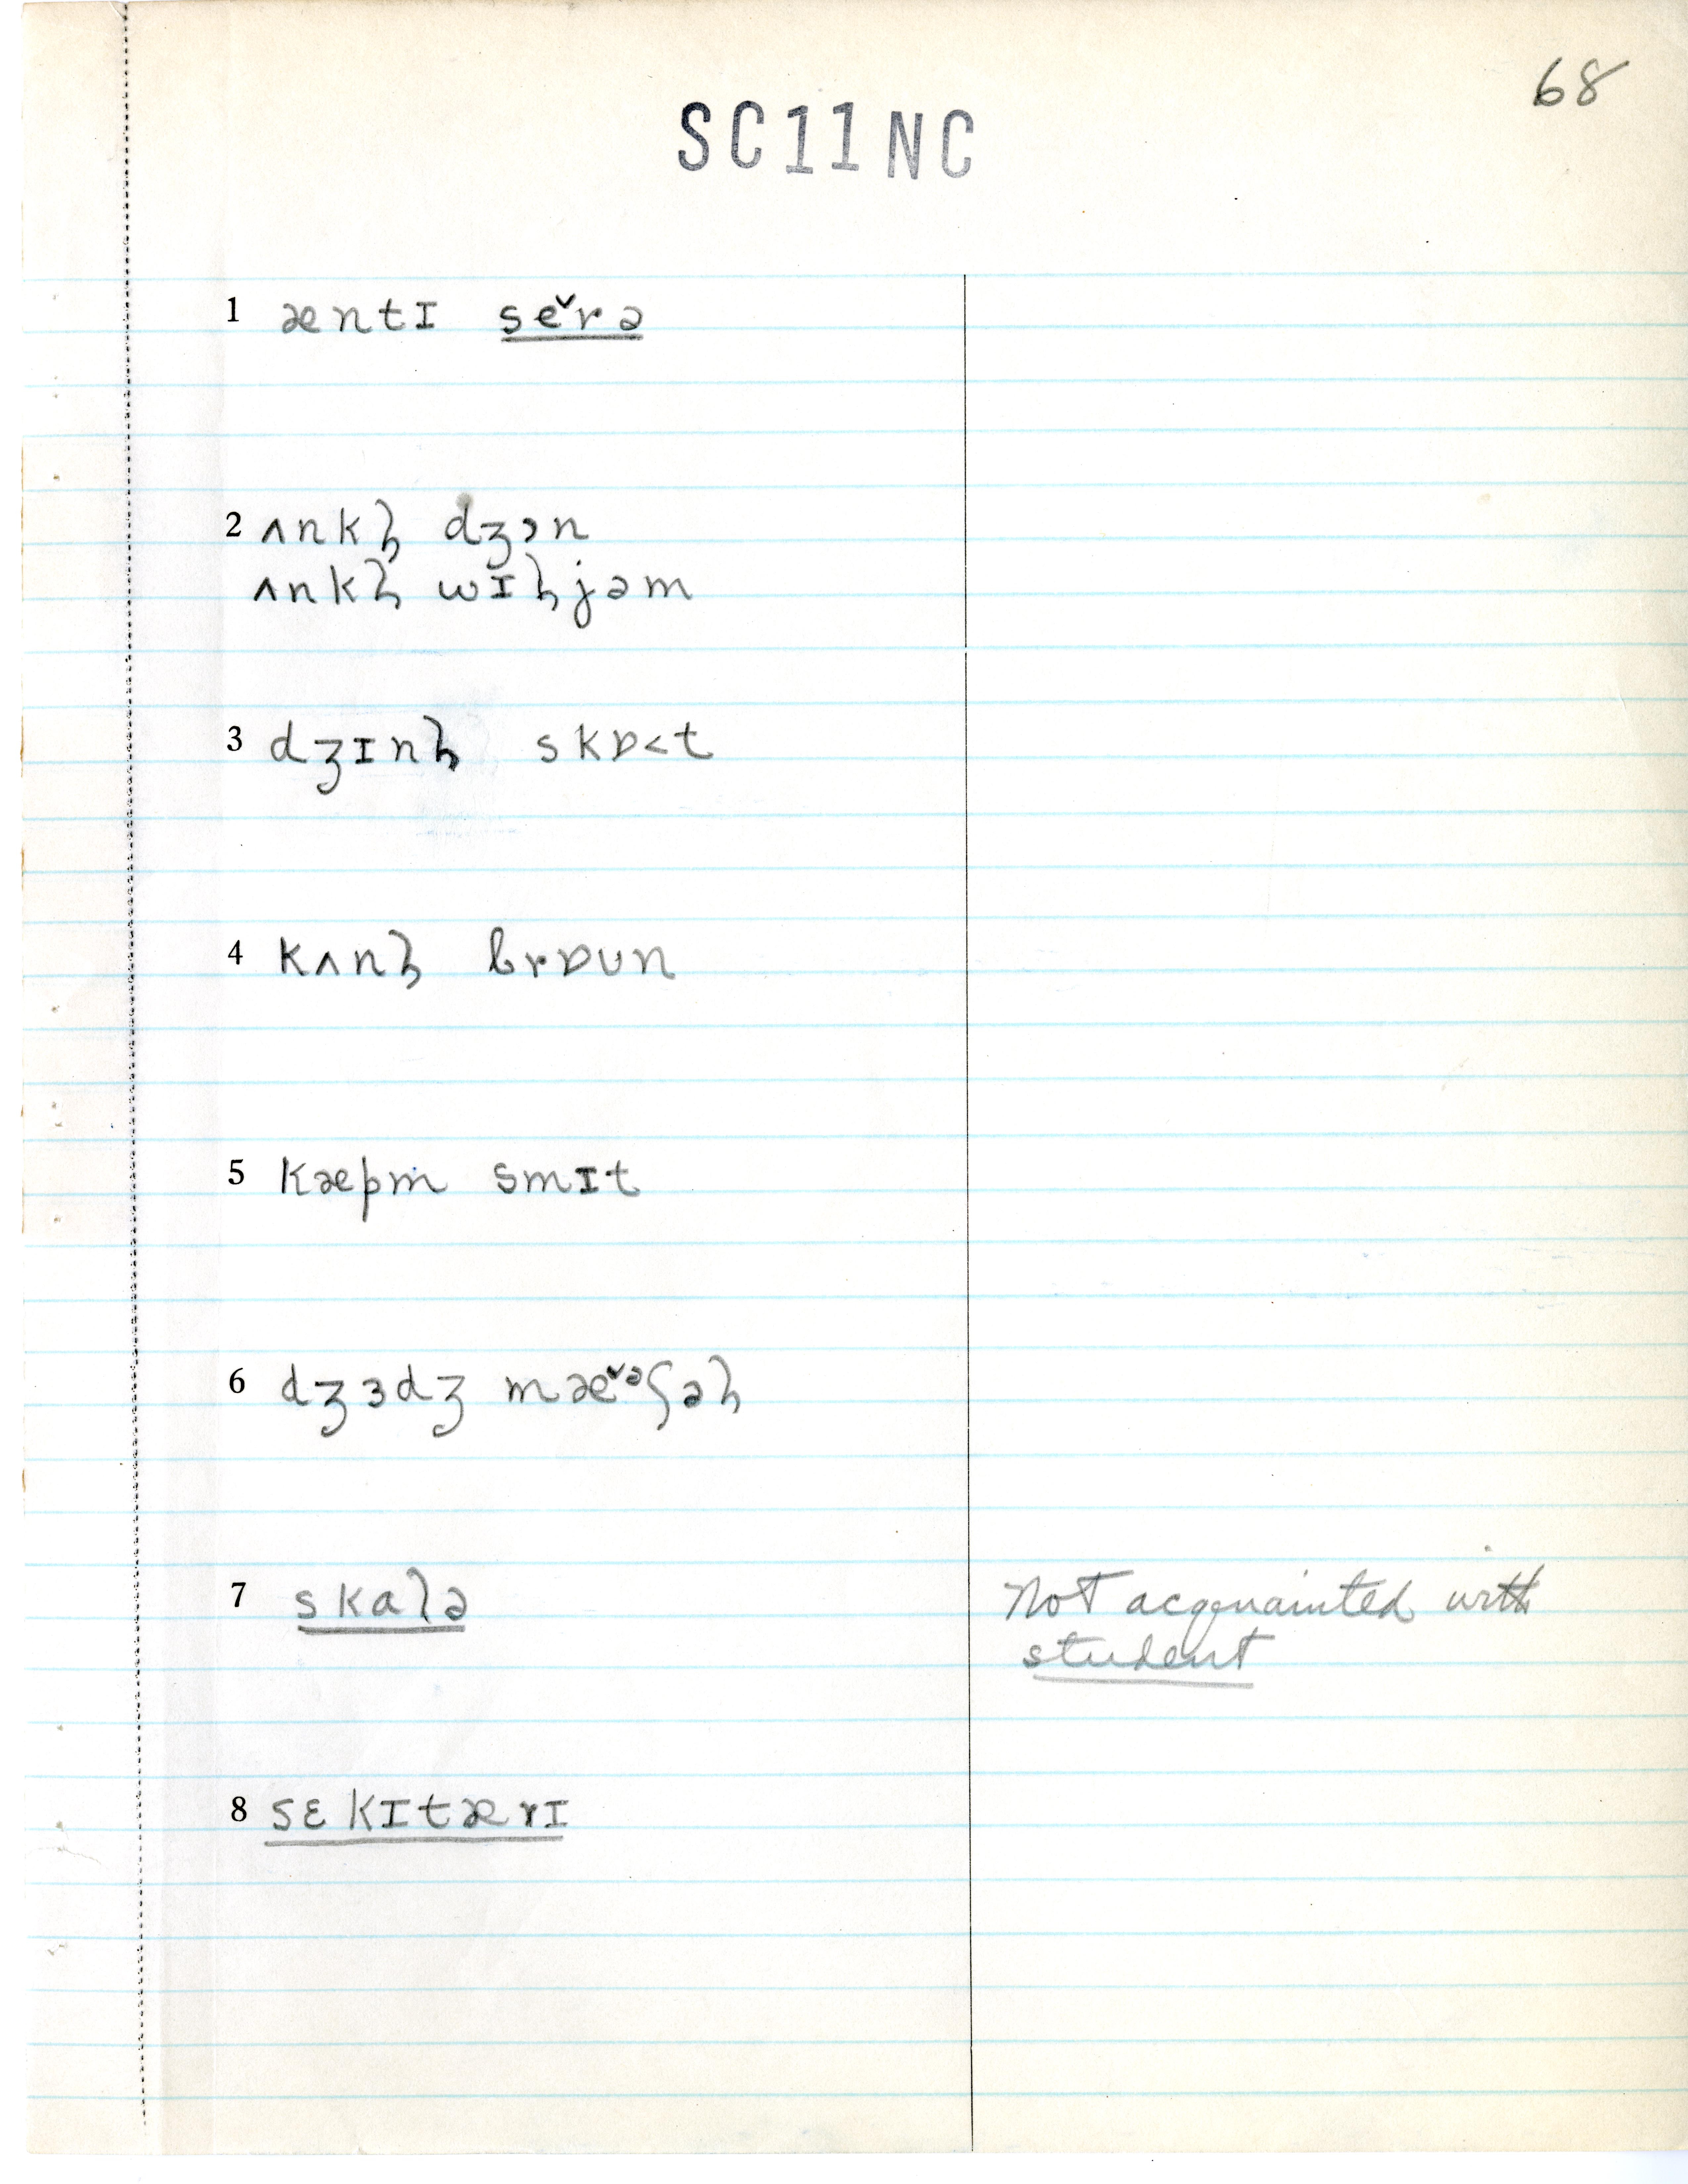 68
SC11NC
1 æntɪ se˅rə
2 ʌnkɫ̩ dʒɔn
ʌnkɫ̩ wɪɫjəm
3 dʒɪnɫ̩ skɒ<t
4 kʌnɫ̩ brɒun
5 kæpm smɪt
6 dʒɜdʒ mæ˅ᵊʃəɫ
7 skalə Not acquainted with
student
8 sɛkɪtærɪ